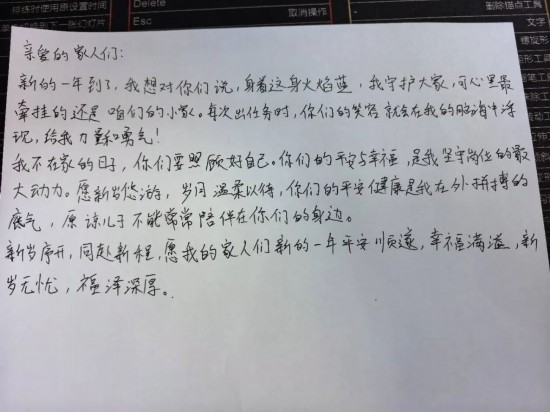 排练时使用原设置时间
Delete
Esc
取消操作
删除锚点工具
文字
亲爱的家人们:
新的一年到了,我想对你们说,身着这身火焰蓝,我守护大家,可心里最
牵挂的还是咱们的小家。每次出任务时,你们的笑容就会在我的脑海中浮
现,给我力量和勇气!
我不在家的日子,你们要照顾好自己。你们的平安与幸福,是我坚守岗位的最
大动力。愿新岁悠游,岁月温柔以待,你们的平安健康是我在外拼搏的
底气,原谅儿子不能常常陪伴在你们的身边。
新岁序开,同赴新程,愿我的家人们新的一年平安顺遂,幸福满溢,新
岁无忧,福泽深厚。